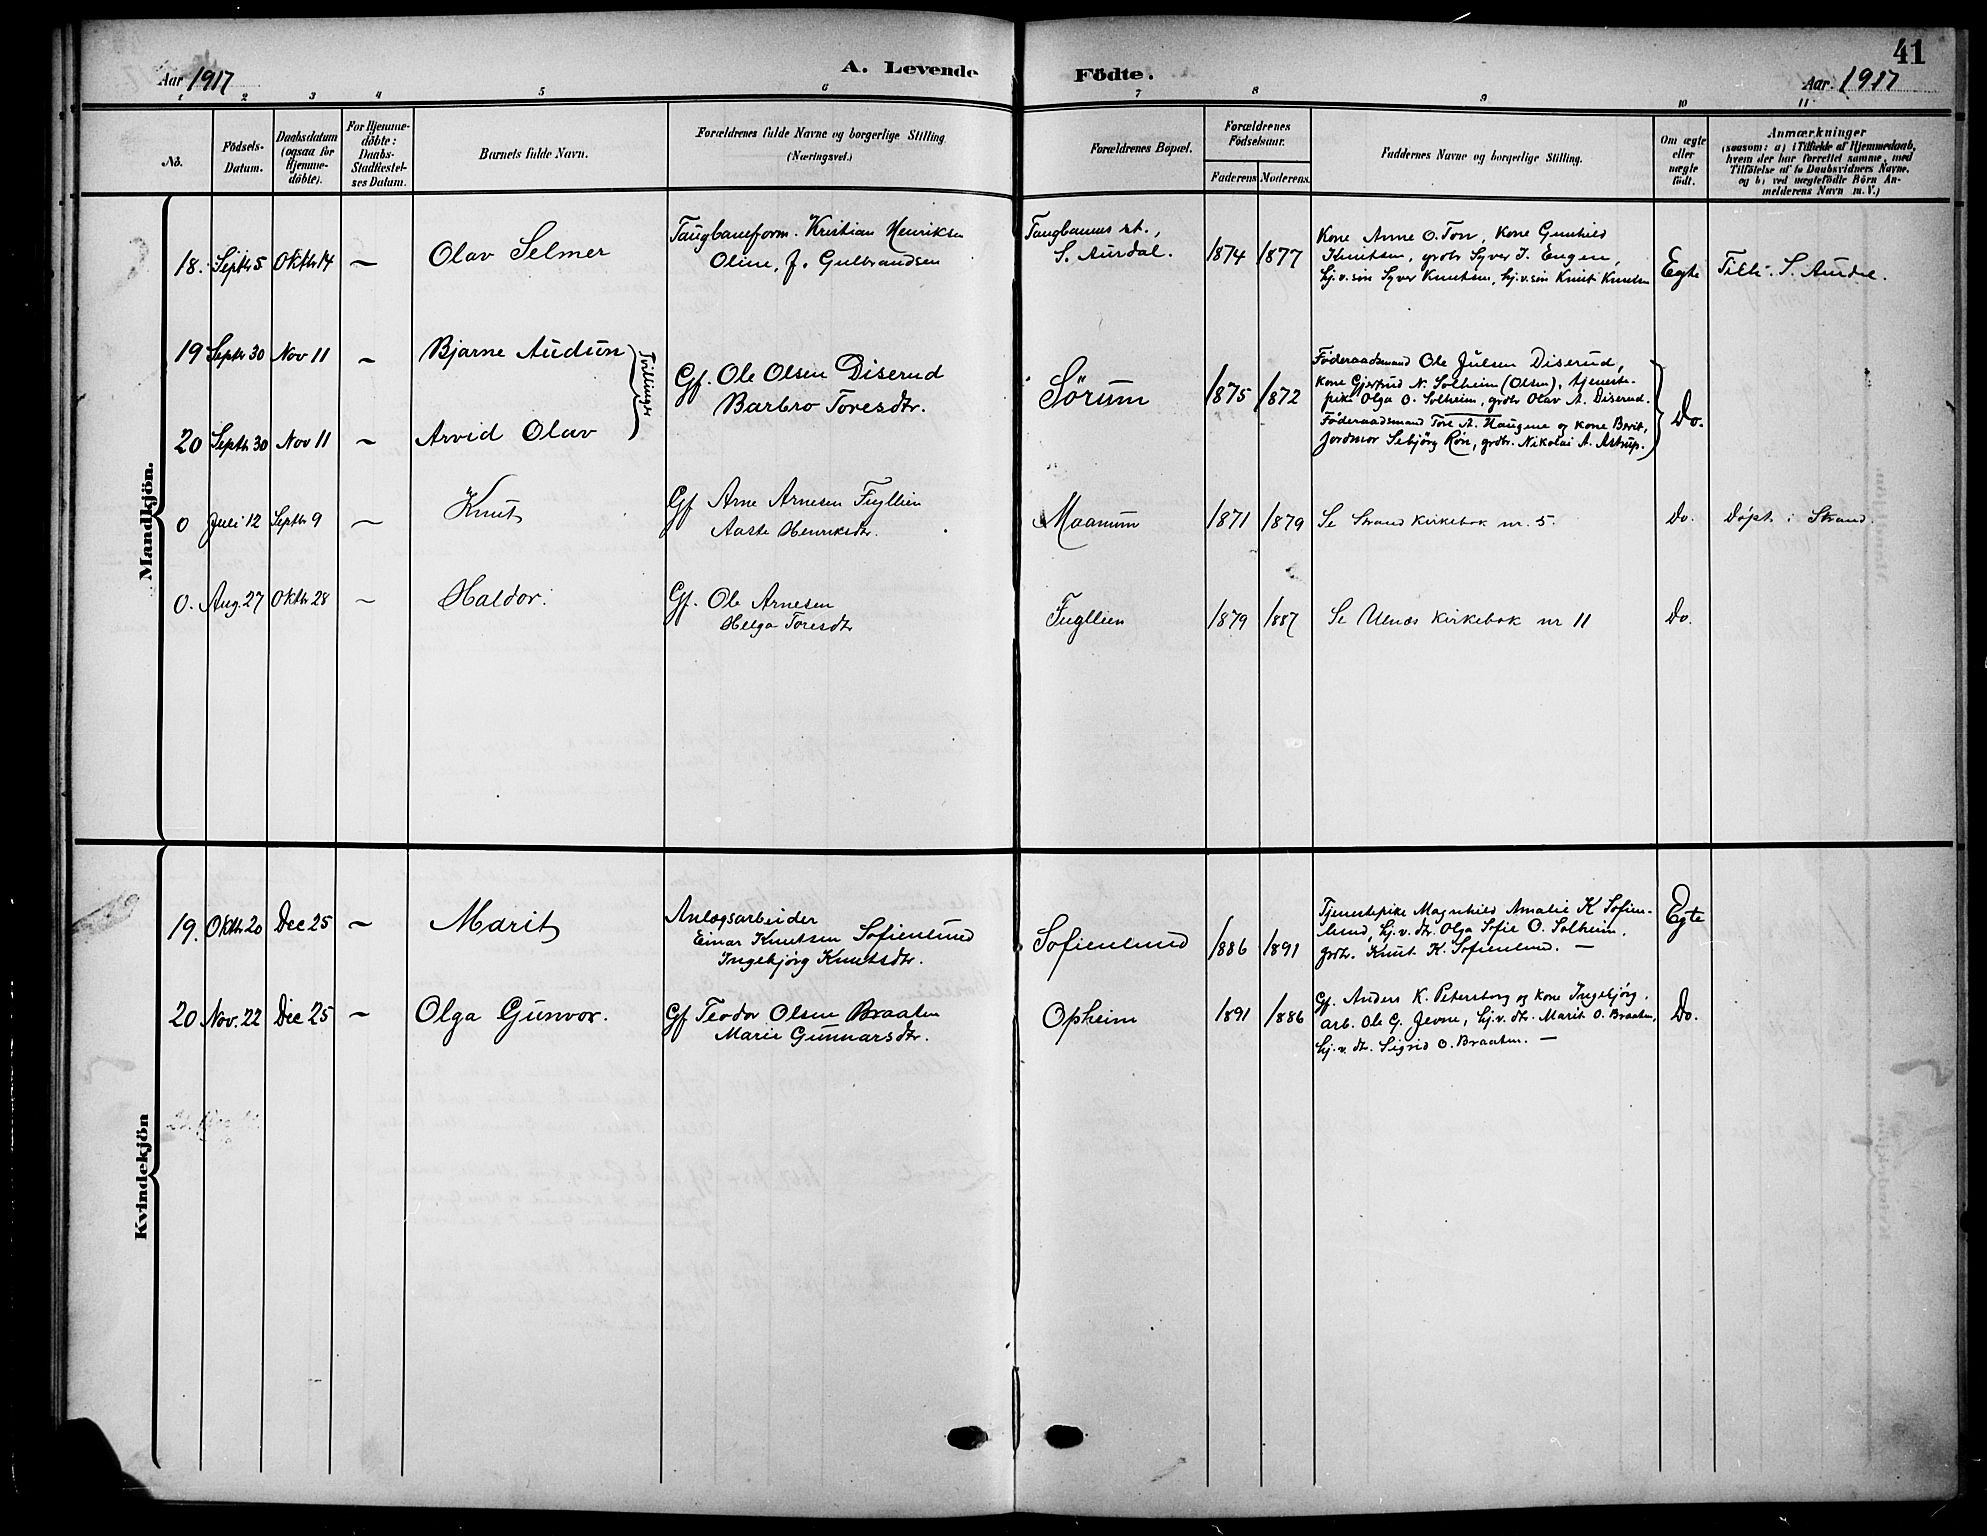 41
Aar 1917
A. Levende
Födte.
Aar. 1917
1 2 3 4 5 6 7 8 9 10 11
No.
Födsels-
Datum.
Daabsdatum
(ogsaa for
Hjemme-
döbte).
For Hjemme-
döbte:
Daabs-
Stadfæstel-
ses Datum.
Barnets fulde Navn.
Forældrenes fulde Navne og borgerlige Stilling
(Næringsvei.)
Forældrenes Bopæl.
Forældrenes
Födselsaar.
Faderens Moderens.
Faddernes Navne og borgerlige Stilling.
Om ægte
eller
uægte
födt.
Anmærkninger
(saasom: a) i Tilfælde af Hjemmedaab,
hvem der har forrettet samme, med
Tilföielse af to Daabsvidners Navne,
og b) ved uægtefödte Börn An-
melderens Navn m. V.)
Mandkjön.
18. Septbr 5 Oktbr 14 — Olav Selmer
Taugbaneform. Kristian Henriksen
Oline, f. Gulbrandsen
Taugbanens st.,
S. Aurdal.
1874 1877
Kone Anne O. Ton, Kone Gunhild
Knutsen, grdbr Syver I. Engen,
hj.v.søn Syver Knutsen, hj.v.søn Knut Knutsen
Egte
Tilh. S. Aurdal.
19 Septbr 30 Nov 11 — Bjarne Audun
20 Septbr 30 Nov 11 — Arvid Olav
Tvillinger
Gf. Ole Olsen Diserud
Barbro Toresdtr.
Sörum
1875 1872
Föderaadsmand Ole Julsen Diserud,
kone Gjertrud N. Solheim (Olsen), tjeneste-
pike Olga O. Solheim, grdbr Olav A. Diserud.
Föderaadsmand Tore A. Haugene og kone Berit,
Jordmor Sebjörg Røn, grdbr. Nikolai A. Astrup.
Do.
0 Juli 12 Septbr 9 — Knut
Gf Arne Arnesen Fugllien
Aaste Henriksdtr.
Maanum
1871 1879
Se Strand Kirkebok nr. 5.
Do.
Døpt i Strand.
0. Aug. 27 Oktbr 28 — Haldor.
Gf. Ole Arnesen
Helga Toresdtr
Fugllien
1879 1887
Se Ulnæs Kirkebok nr 11
Do.
Kvindekjön
19. Oktbr 20 Dec 25 — Marit
Anlægsarbeider
Einar Knutsen Sofienlund
Ingebjørg Knutsdtr.
Sofienlund
1886 1891
Tjenestepike Magnhild Amalie K Sofien-
lund, hj.v.dtr. Olga Sofie O. Solheim,
grdbr. Knut K. Sofienlund. —
Egte
20 Nov. 22 Dec 25 — Olga Gunvor.
Gf Teodor Olsen Braaten
Marie Gunnarsdtr.
Opheim
1891 1886
Gf. Anders K. Petersborg og kone Ingebjörg,
arb. Ole G. Jevne, hj.v. dtr. Marit O. Braaten,
hj.v. dtr. Sigrid O. Braaten. —
Do.